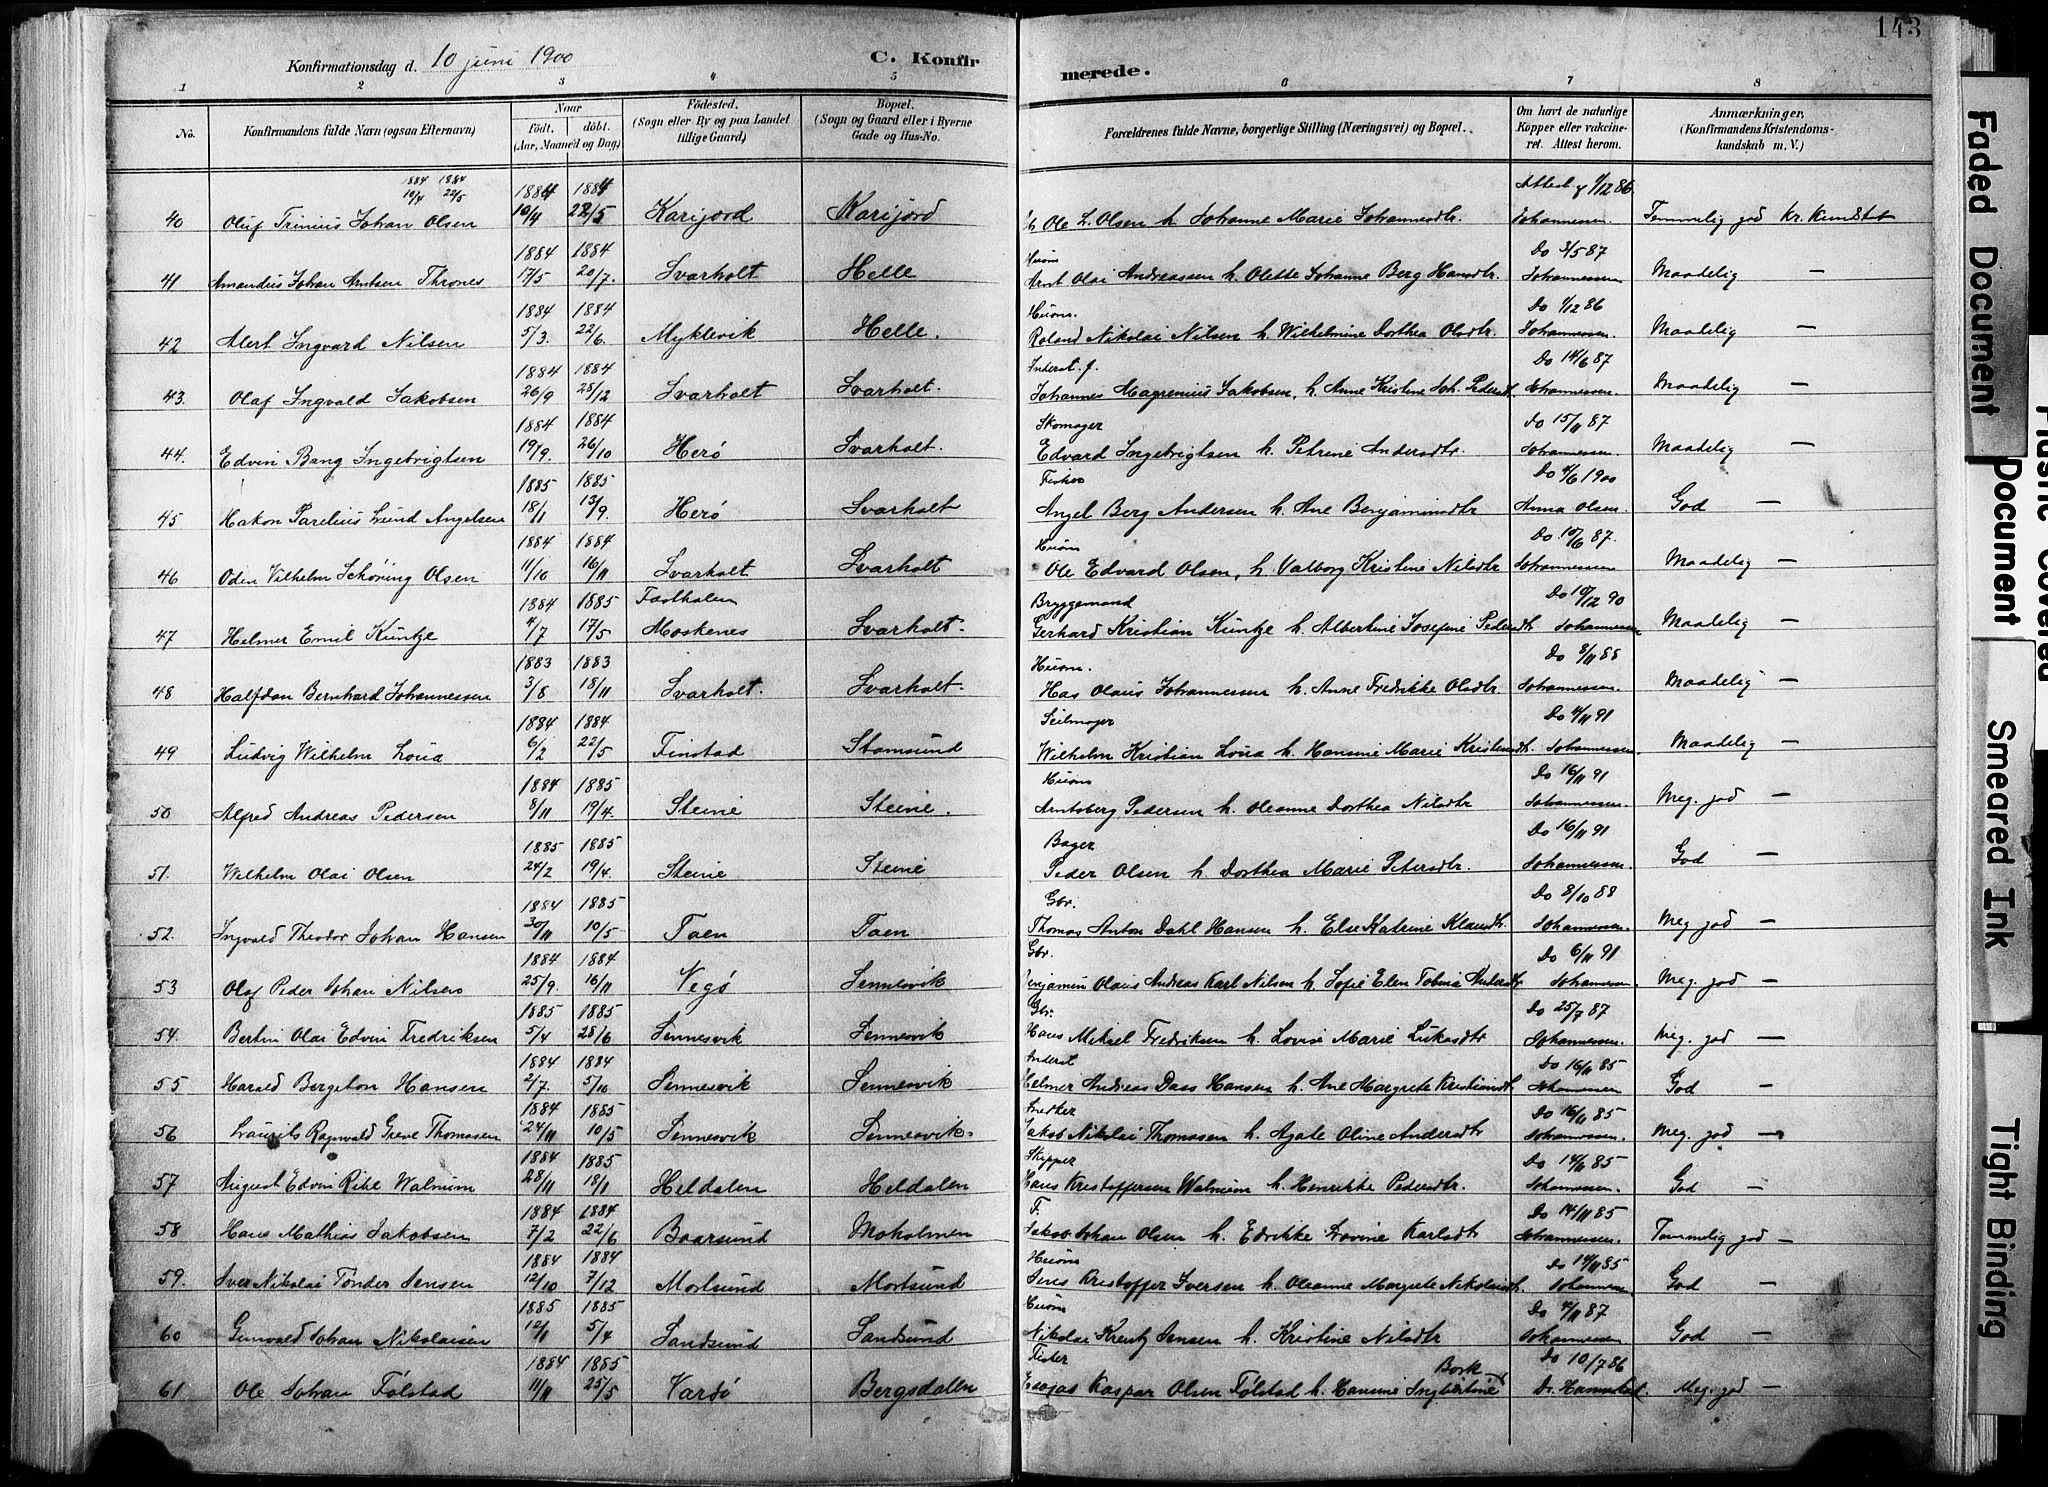 143
Konfirmationsdag d. 10 juni 1900 C. Konfir merede.
1 2 3 4 5 6 7 8
No. Konfirmandens fulde Navn (ogsaa Efternavn) Naar født. døbt. (Aar, Maaned og Dag) Fødested. (Sogn eller By og paa Landet tillige Gaard) Bopæl. (Sogn og Gaard eller i Byerne Gade og Hus-No. Forældrenes fulde Navne, borgerlige Stilling (Næringsvei) og Bopæl. Om havt de naturlige Kopper eller vakcineret. Attest herom. Anmærkninger, (Konfirmandens Kristendomskundskab m. V.)
1884 1884 1884 1884 Attest 1/12 86
10/4 22/5
40 Oluf Trinius Johan Olsen 10/4 22/5 Karijord Karijord Ole L. Olsen h. Johanne Marie Johannesdtr. Johannessen Temmelig god Kr. kundskab
1884 1884 Huom Do 3/5 87
41 Amandus Johan Arntsen Thrones 17/5 20/7. Svarholt Helle Arnt Olai Andreassen h. Olette Johanne Berg Hansdtr. Johannessen Maadelig —
1884 1884 Huom. Do 1/12 86
42 Alert Ingvard Nilsen 5/3. 22/6. Myklevik Helle. Roland Nikolai Nilsen h. Wilhelmine Dorthea Olsdtr. Johannessen. Maadelig —
1884 1884 Inderst. f. Do 14/6 87
43. Olaf Ingvald Jakobsen 26/9 28/12 Svarholt Svarholt. Johannes Magrenius Jakobsen, h. Anne Kristine Joh. Pedersdt. Johannessen. Maadelig —
1884 1884 Skomager Do 15/11 87
44. Edvin Bang Ingebrigtsen 19/9. 26/10 Herø Svarholt. Edvard Ingebrigtsen h. Petrine Andersdtr Johannessen Maadelig —
1885 1885 Fisker Do 4/6 1900
45 Hakon Parelius Lund Angelsen 18/1 13/9. Herø Svarholt Angel Berg Andersen h. Ane Benjaminsdtr Anna Olsen. God —
1884 1884 Huom Do 10/6 87.
46 Odin Vilhelm Schøning Olsen 11/10 16/11 Svarholt Svarholt Ole Edvard Olsen, h. Valborg Kristine Nilsdtr Johannessen Maadelig —
1884 1885 Fastholen Bryggemand Do 10/12 90
47 Helmer Emil Kuntze 4/7 17/5 Moskenes Svarholt. Gerhard Kristian Kuntze h. Albertine Josefine Pedersdtr Johannessen Maadelig —
1883 1883 Huom. Do 8/11 88
48 Halfdan Bernhard Johannessen 3/8 18/11 Svarholt. Svarholt. Has Olaus Johannessen h. Anne Fredrikke Olsdtr. Johannessen. Maadelig —
1884 1884 Seilmager Do 4/11 91
49 Ludvig Wilhelm Loua 6/2 22/5 Finstad Stamsund Wilhelm Kristian Loua h. Hansine Marie Kristensdtr. Johannessen. Maadelig —
1884 1885 Huom Do 16/11 91
50 Alfred Andreas Pedersen 8/11 19/4. Steine Steine. Arntsberg Pedersen h. Oleanne Dorthea Nilsdtr Johannessen. Meg. god —
1885 1885 Bager Do 16/11 91
51. Wilhelm Olai Olsen 24/2 19/4. Steine Steine Peder Olsen h. Dorthea Marie Petersdtr. Johannessen. God —
1884 1885 Gbr. Do 8/10 88
52. Ingvald Theodor Johan Hansen 30/11 10/5 Taen Taen Thomas Anton Dahl Hansen h. Else Katrine Klausdtr. Johannessen. Meg god —
1884 1884 Gbr. Do 6/11 91
53 Olaf Peder Johan Nilsen 25/9. 16/11 Vegø Sennesvik Benjamin Olaus Andreas Karl Nilsen h. Sofie Elen Tobina Andersdtr Johannessen. Meg. god —
1885 1885 Gbr. Do 25/7 87
54. Bertin Olai Edvin Fredriksen 5/4 28/6 Sennesvik Sennesvik Hans Mikael Fredriksen h. Lovise Marie Lukasdtr Johannessen. Meg. god —
1884 1884 Inderst Do 16/11 85
55 Harald Bergeton Hansen 2/7. 5/10 Sennesvik Sennesvik Helmer Andreas Dass Hansen h. Ane Margrete Kristiansdtr Johannessen God —
1884 1885 Snedker Do 16/11 85
56 Laurits Ragnvald Greve Thomasen 24/11 10/5 Sennesvik Sennesvik. Jakob Nikolai Thomasen h. Agate Oline Andersdtr Johannessen. Meg. god —
1884 1885 Skipper Do 14/6 85
57 August Edvin Rihl Walnum 28/11 18/1 Heldalen Heldalen Hans Kristoffersen Walnum h. Henrikke Pedersdtr. Johannessen. God —
1884 1884 F. Do 14/11 85
58 Hans Mathias Jakobsen 7/2 22/6 Baarsund Moholmen Jakob Johan Olsen h. Edrikke Lovine Karlsdtr Johannessen. Temmelig god —
1884 1884 Huom Do 14/11 85
59. Iver Nikolai Tønder Jensen 12/10 7/12 Mortsund Mortsund Jens Kristoffer Iversen h. Oleanne Margrete Nikolaisdtr. Johannessen God —
1885 1885 Huom Do 4/11 87
60 Gunvald Johan Nikolaisen 12/1 5/4 Sandsund Sandsund Nikolai Krentz Jensen h. Kristine Nilsdtr Johannessen God —
1884 1885 Fisker Bork Do 10/7 86
61 Ole Johan Følstad 11/11 25/5 Vardø Bergsdalen Esajas Kaspar Olsen Følstad h. Hansine Ingbertine Dr. Hannestad. Meg. god —
Faded Document
Document
Smeared Ink
Tight Binding
Covered